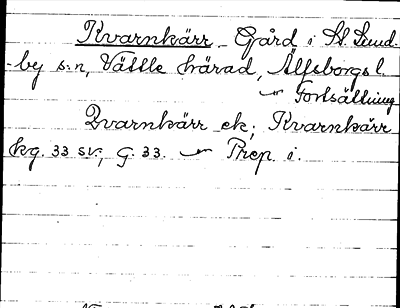 Kvarnkärr – Gård i St. Lund-
by s:n, Vättle härad, Älfsborgs l.
~ Fortsättning
Qvarnkärr ek; Kvarnkärr
kg. 33 sv, G. 33. ~ Prep. i.